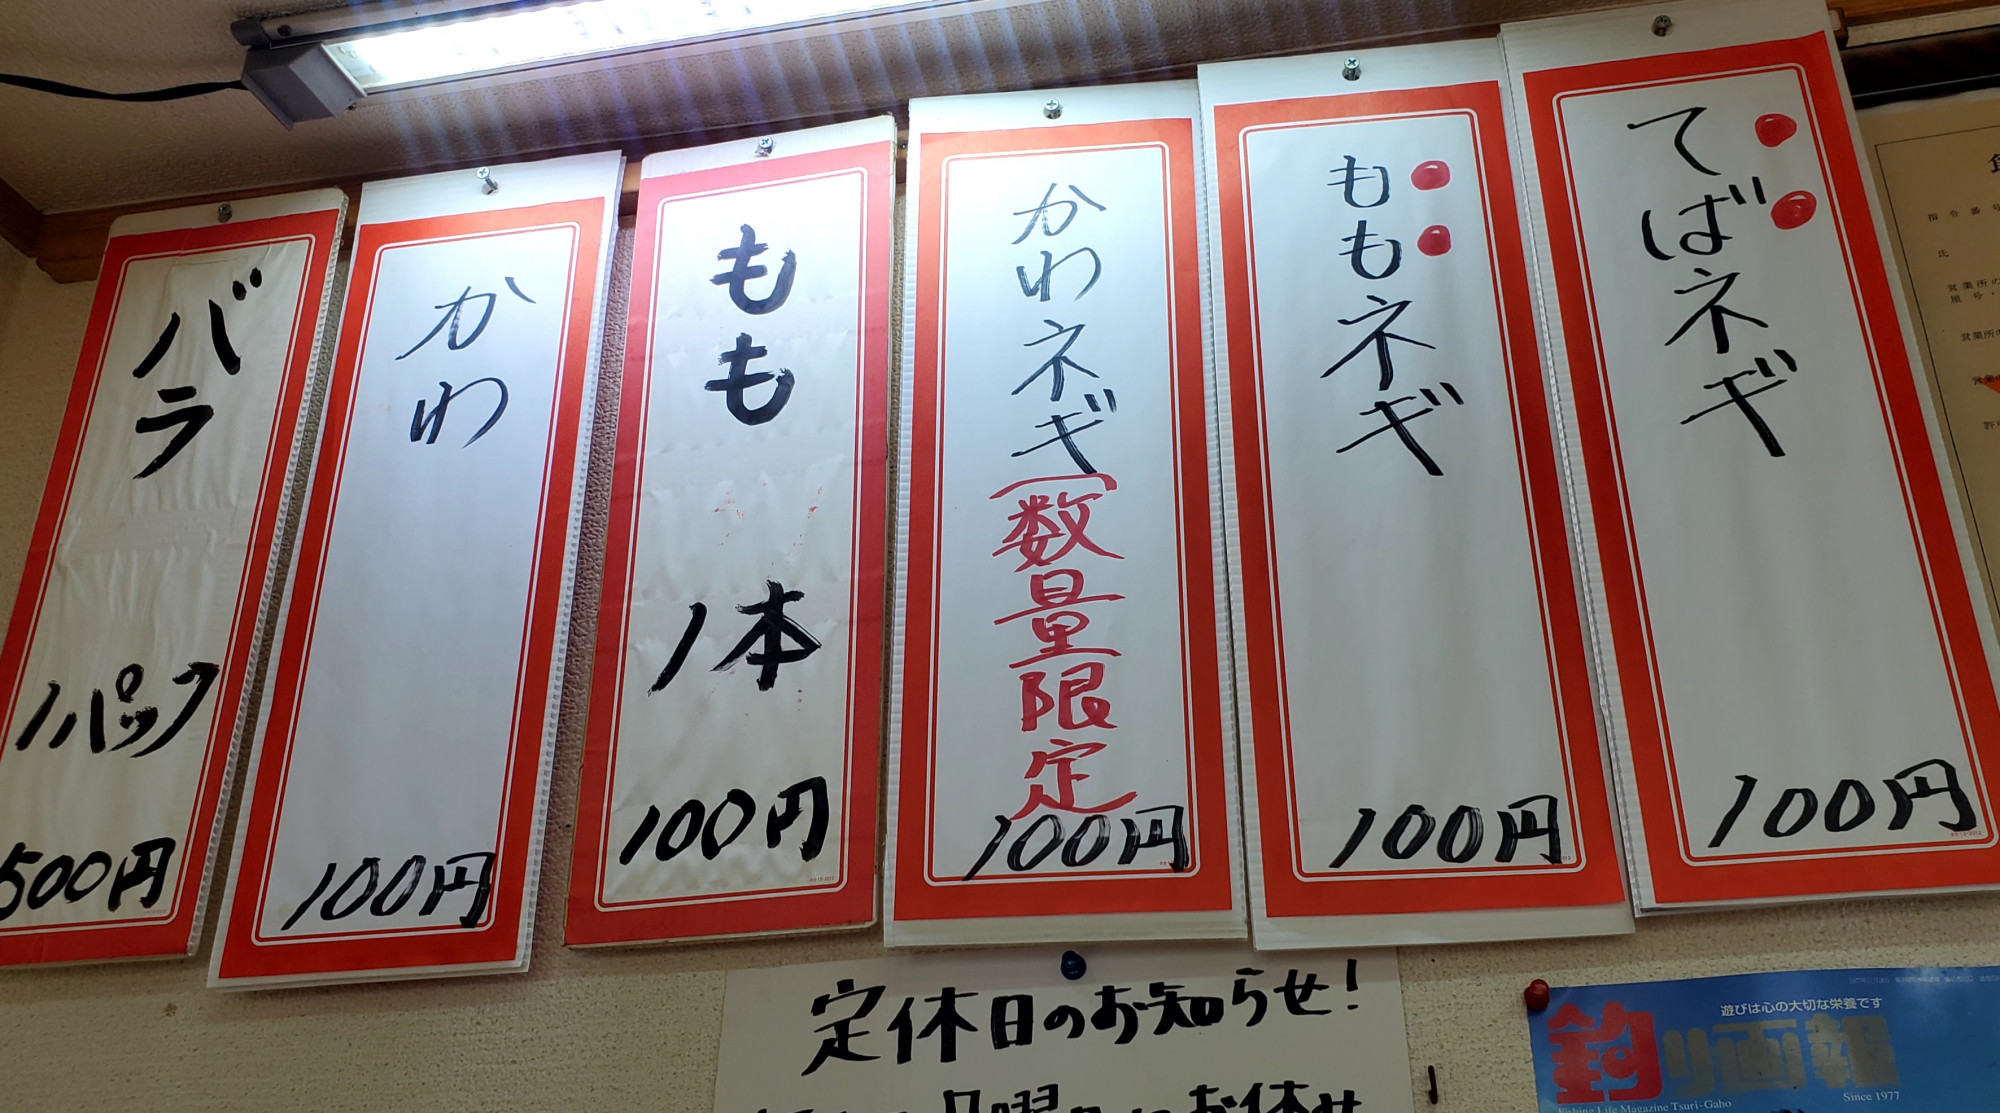 てばネギ
100円
ももネギ
100円
かわネギ(数量限定
100円
もも
1本
100円
かわ
100円
バラ
1パック
500円
定休日のお知らせ!
遊びは心の大切な栄養です
釣り画報
Fishing Life Magazine Tsuri-Gaho
Since 1977
指令番号
氏
営業所の
屋号・
営業所の